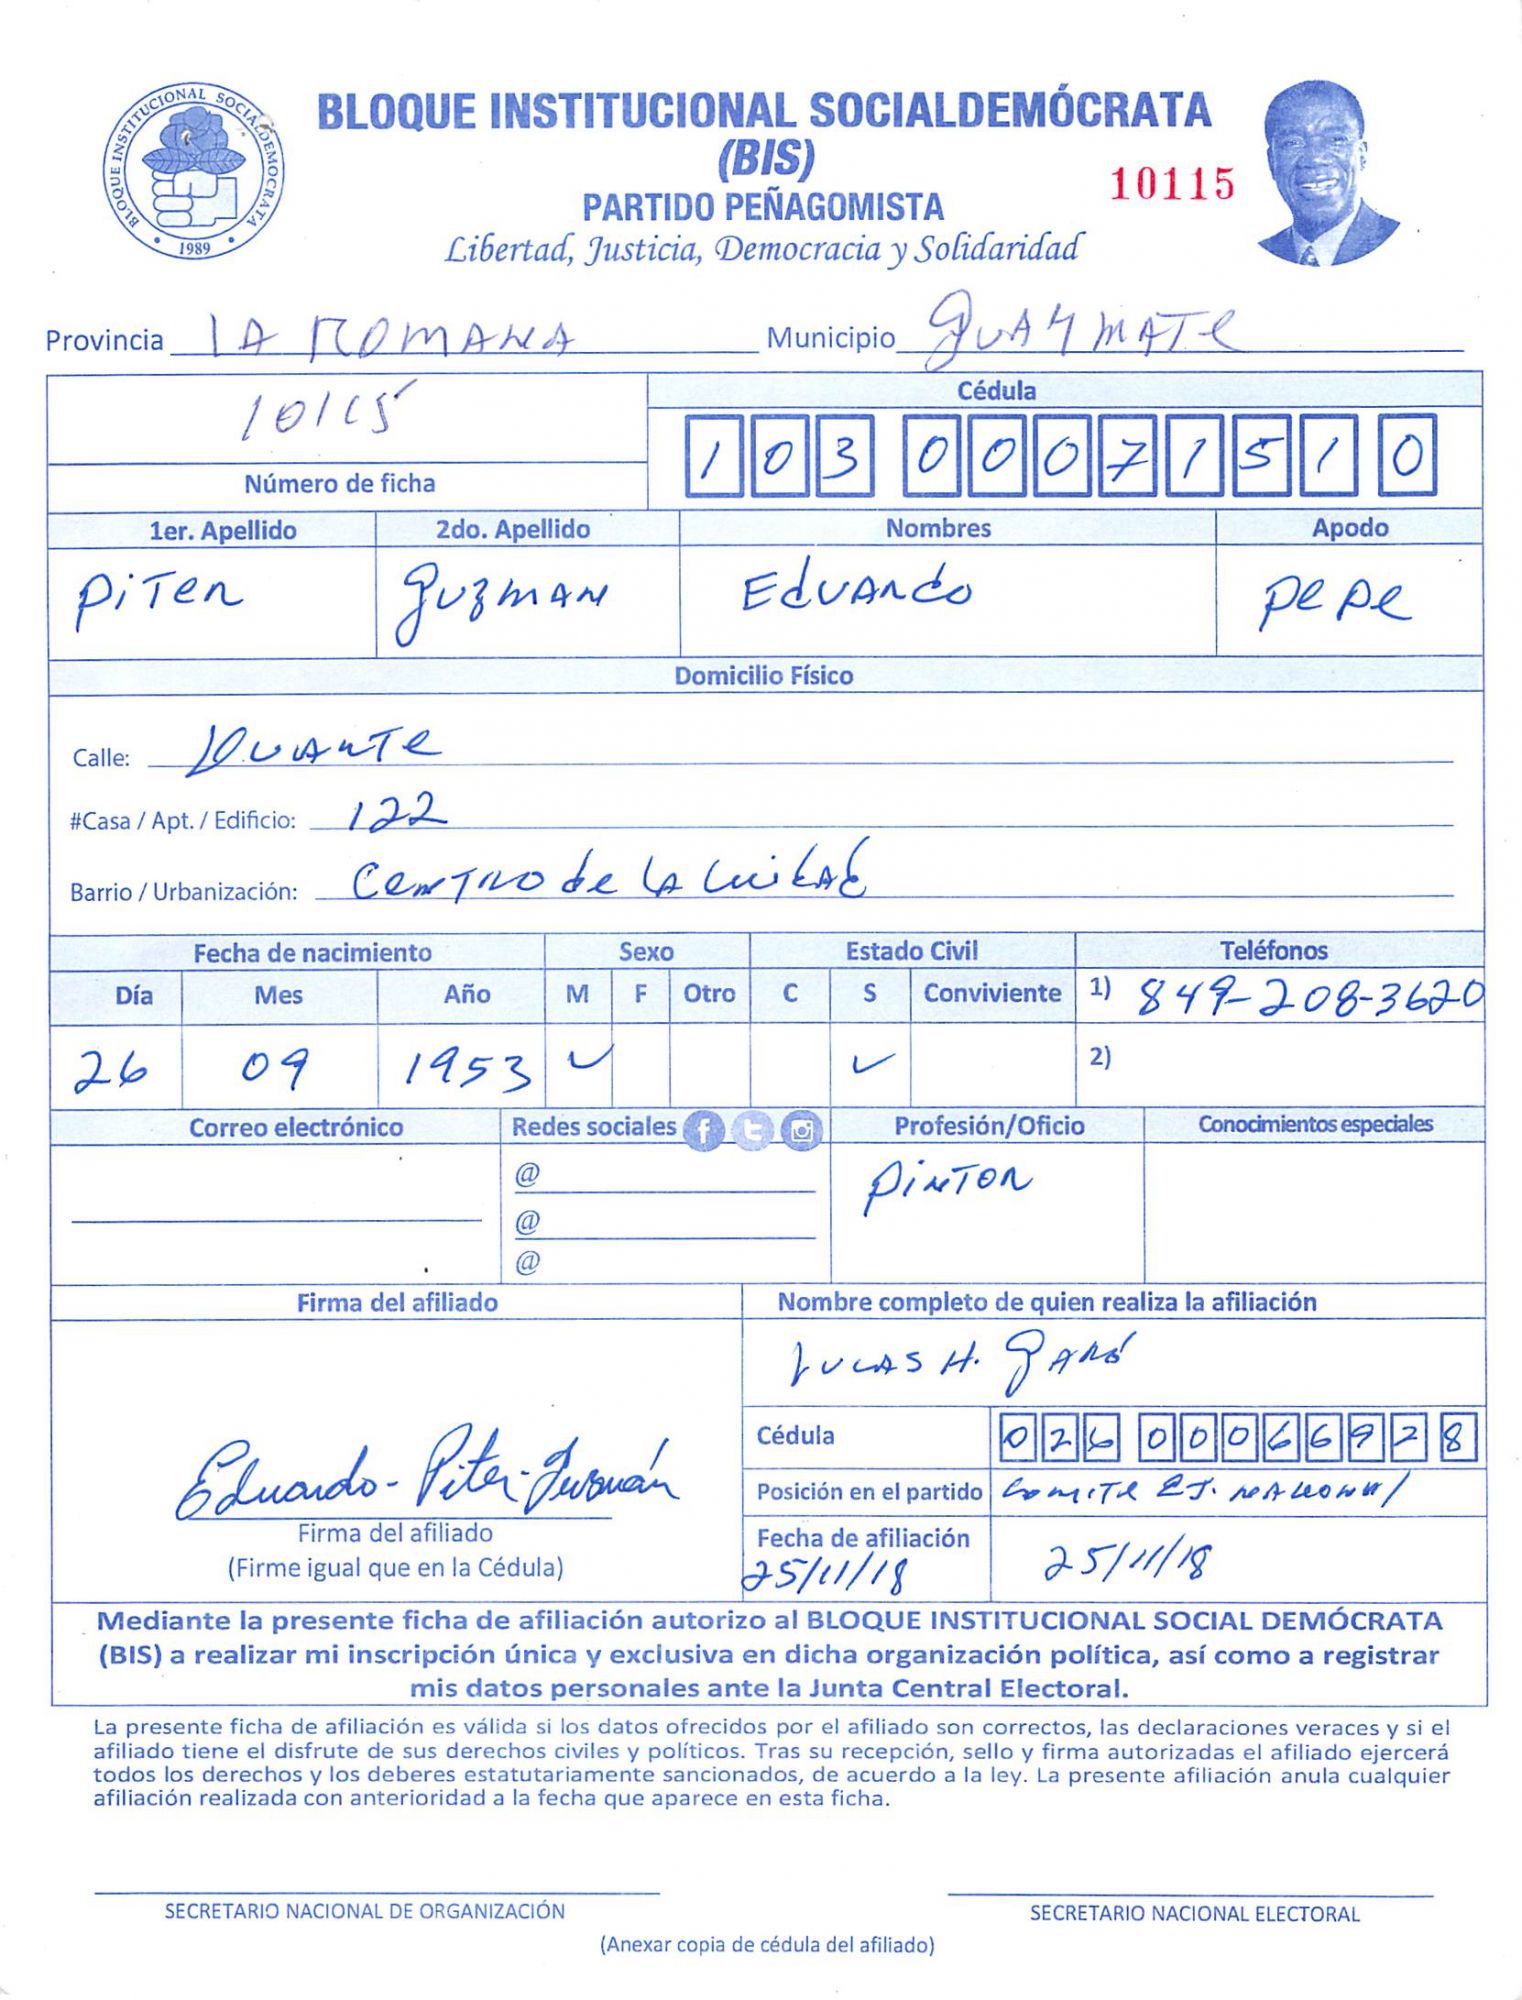 BLOQUE INSTITUCIONAL SOCIALDEMOCRATA
1989
BLOQUE INSTITUCIONAL SOCIALDEMÓCRATA
(BIS)
PARTIDO PEÑAGOMISTA
10115
Libertad, Justicia, Democracia y Solidaridad
Provincia LA ROMANA Municipio GUAYMATE
10115
Número de ficha
Cédula
103 0007151 0
1er. Apellido 2do. Apellido Nombres Apodo
PiTER GUZMAN EduARdo PePe
Domicilio Físico
Calle: DUARTE
#Casa / Apt. / Edificio: 122
Barrio / Urbanización: CENTRO de LA CiudAd
Fecha de nacimiento Sexo Estado Civil Teléfonos
Día Mes Año M F Otro C S Conviviente 1) 849-208-3620
26 09 1953 ✓ ✓ 2)
Correo electrónico Redes sociales Profesión/Oficio Conocimientos especiales
@ PiNTOR
@
@
Firma del afiliado Nombre completo de quien realiza la afiliación
LUCAS H.
Cédula 026 0006692 8
Posición en el partido COMITE EJ. NACIONAL
Eduardo-Piter-Guzmán
Firma del afiliado
(Firme igual que en la Cédula)
Fecha de afiliación
25/11/18 25/11/18
Mediante la presente ficha de afiliación autorizo al BLOQUE INSTITUCIONAL SOCIAL DEMÓCRATA
(BIS) a realizar mi inscripción única y exclusiva en dicha organización política, así como a registrar
mis datos personales ante la Junta Central Electoral.
La presente ficha de afiliación es válida si los datos ofrecidos por el afiliado son correctos, las declaraciones veraces y si el
afiliado tiene el disfrute de sus derechos civiles y políticos. Tras su recepción, sello y firma autorizadas el afiliado ejercerá
todos los derechos y los deberes estatutariamente sancionados, de acuerdo a la ley. La presente afiliación anula cualquier
afiliación realizada con anterioridad a la fecha que aparece en esta ficha.
SECRETARIO NACIONAL DE ORGANIZACIÓN SECRETARIO NACIONAL ELECTORAL
(Anexar copia de cédula del afiliado)